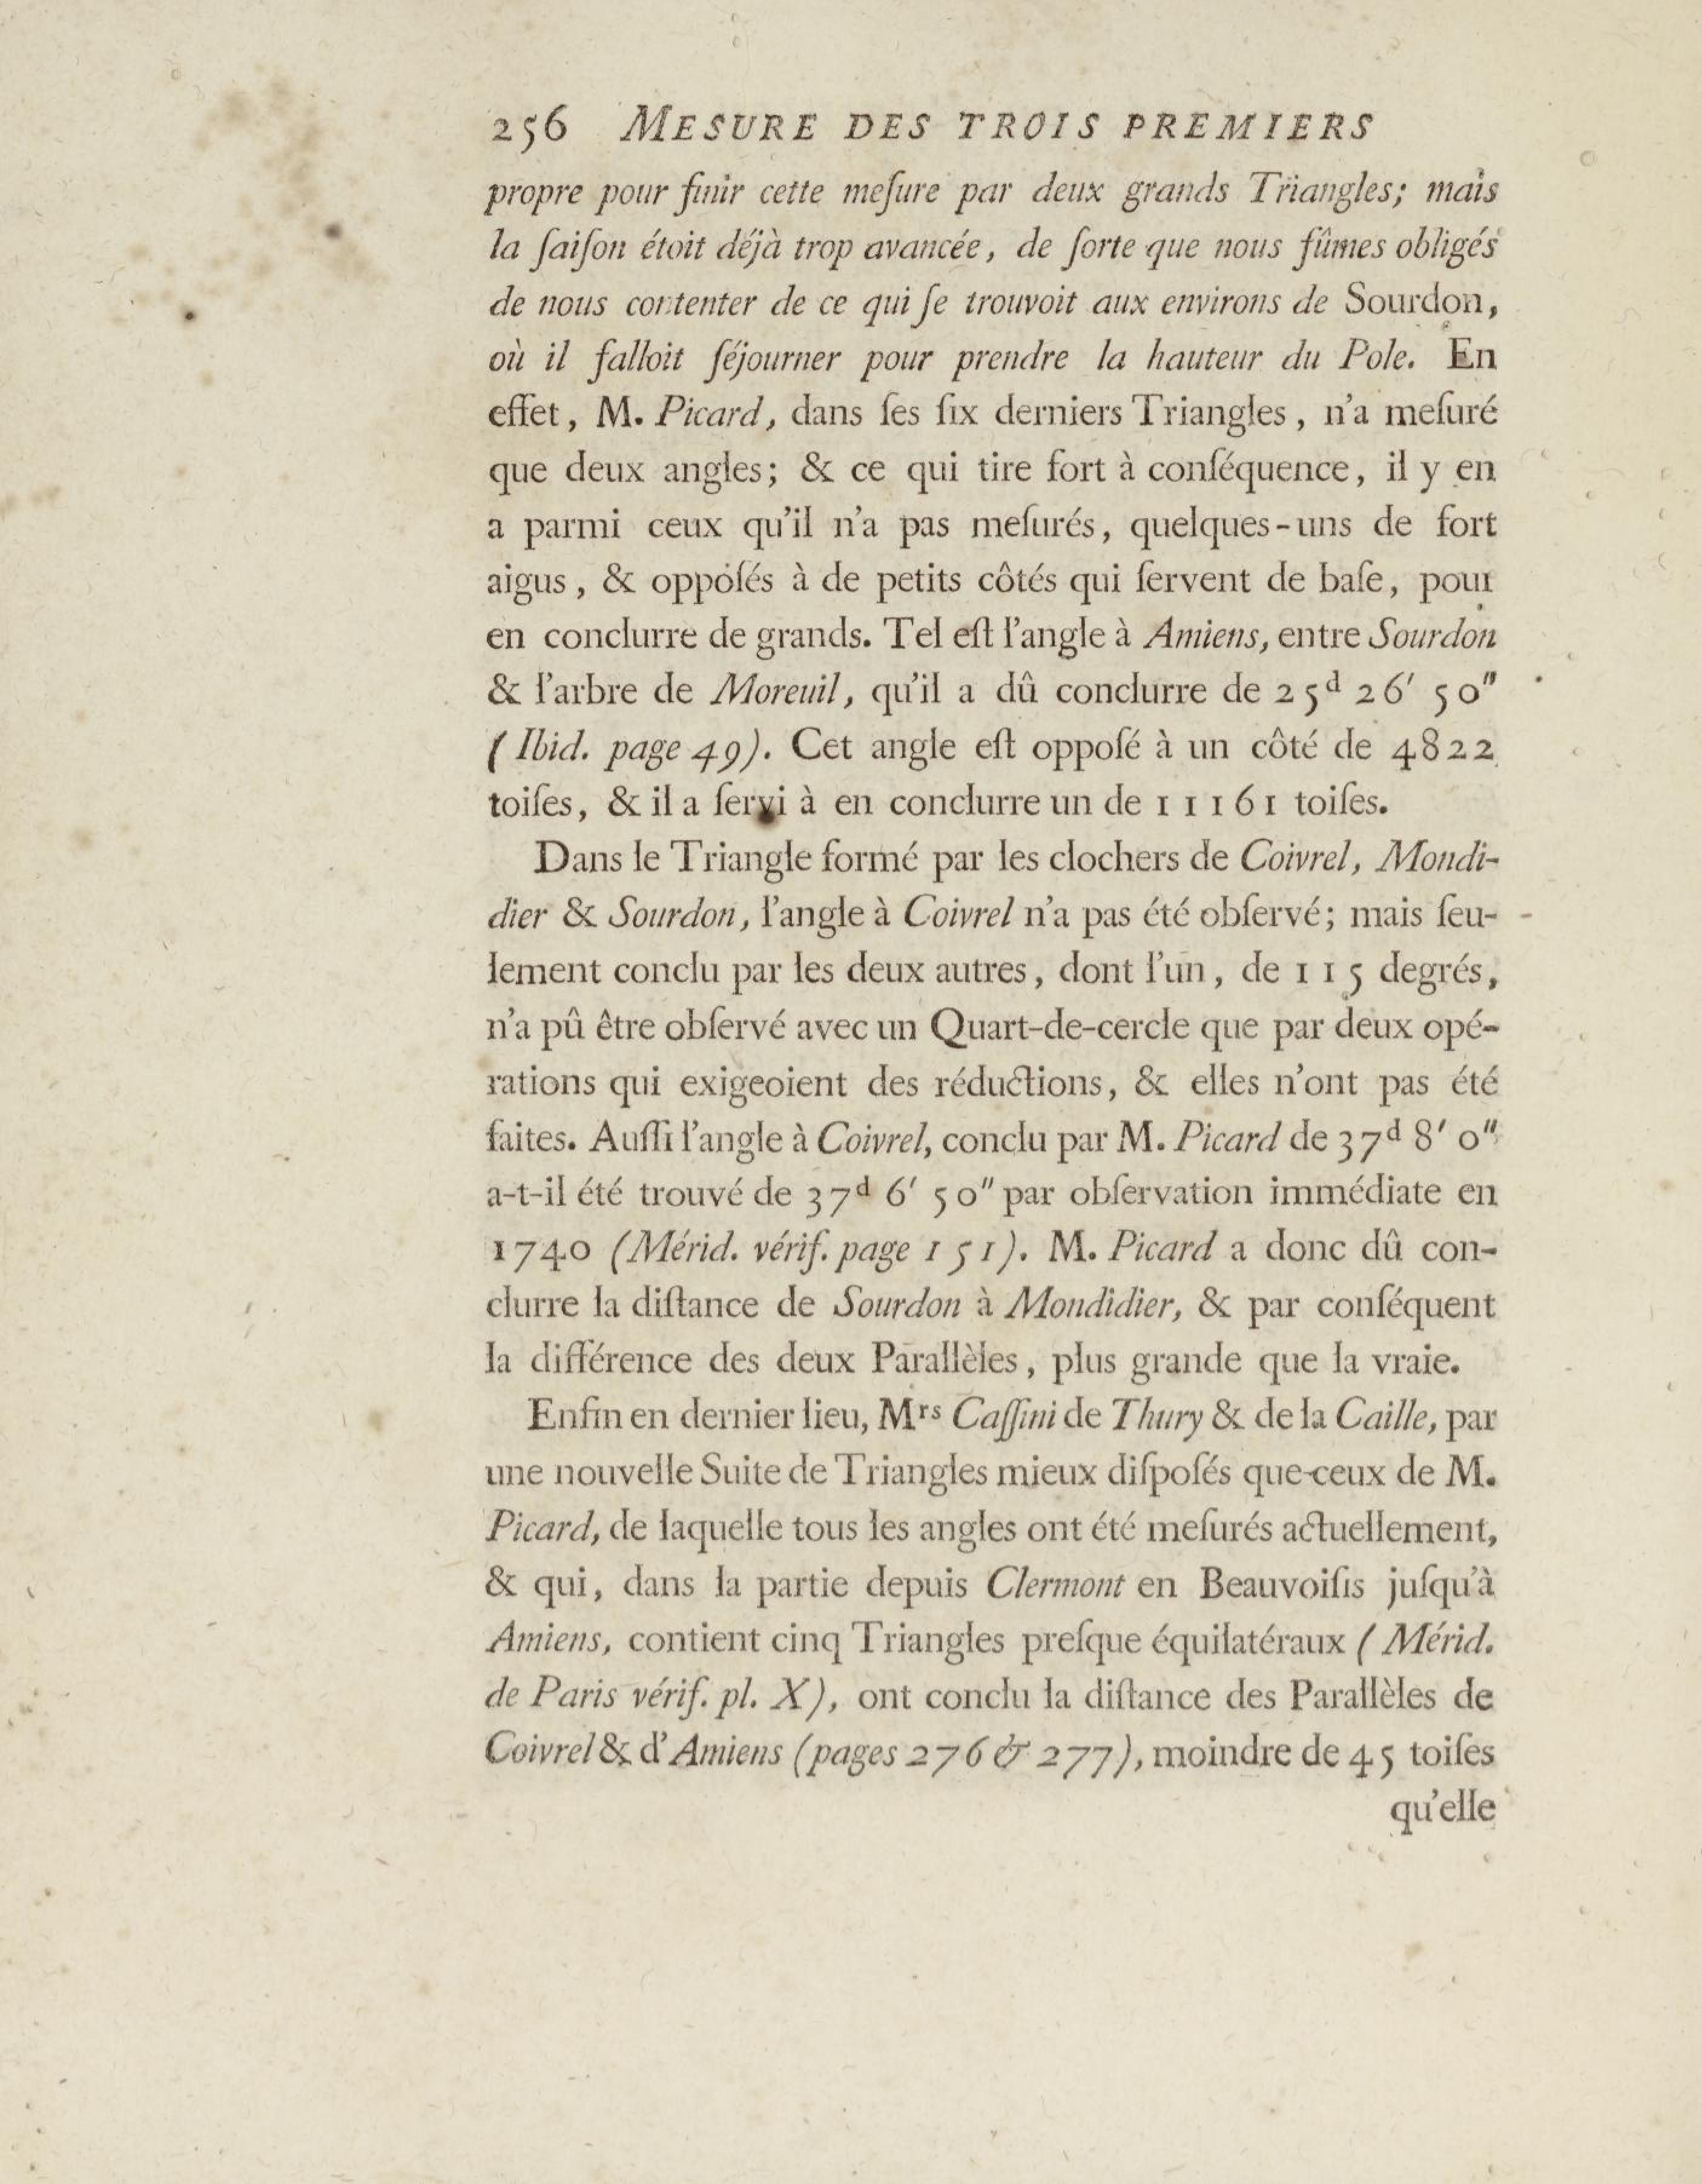 256 MESURE DES TROIS PREMIERS
propre pour finir cette meſure par deux grands Triangles; mais
la ſaiſon étoit déjà trop avancée, de ſorte que nous fûmes obligés
de nous contenter de ce qui ſe trouvoit aux environs de Sourdon,
où il falloit ſéjourner pour prendre la hauteur du Pole. En
effet, M. Picard, dans ſes ſix derniers Triangles, n'a meſuré
que deux angles; & ce qui tire fort à conſéquence, il y en
a parmi ceux qu'il n'a pas meſurés, quelques-uns de fort
aigus, & oppoſés à de petits côtés qui ſervent de baſe, pour
en conclurre de grands. Tel eſt l'angle à Amiens, entre Sourdon
& l'arbre de Moreuil, qu'il a dû conclurre de 25d 26′ 50″
(Ibid. page 49). Cet angle eſt oppoſé à un côté de 4822
toiſes, & il a ſervi à en conclurre un de 11161 toiſes.
Dans le Triangle formé par les clochers de Coivrel, Mondi-
dier & Sourdon, l'angle à Coivrel n'a pas été obſervé; mais ſeu-
lement conclu par les deux autres, dont l'un, de 115 degrés,
n'a pû être obſervé avec un Quart-de-cercle que par deux opé-
rations qui exigeoient des réductions, & elles n'ont pas été
faites. Auſſi l'angle à Coivrel, conclu par M. Picard de 37d 8′ 0″
a-t-il été trouvé de 37d 6′ 50″ par obſervation immédiate en
1740 (Mérid. vérif. page 151). M. Picard a donc dû con-
clurre la diſtance de Sourdon à Mondidier, & par conſéquent
la différence des deux Parallèles, plus grande que la vraie.
Enfin en dernier lieu, Mrs Caſſini de Thury & de la Caille, par
une nouvelle Suite de Triangles mieux diſpoſés que ceux de M.
Picard, de laquelle tous les angles ont été meſurés actuellement,
& qui, dans la partie depuis Clermont en Beauvoiſis juſqu'à
Amiens, contient cinq Triangles preſque équilatéraux (Mérid.
de Paris vérif. pl. X), ont conclu la diſtance des Parallèles de
Coivrel & d'Amiens (pages 276 & 277), moindre de 45 toiſes
qu'elle